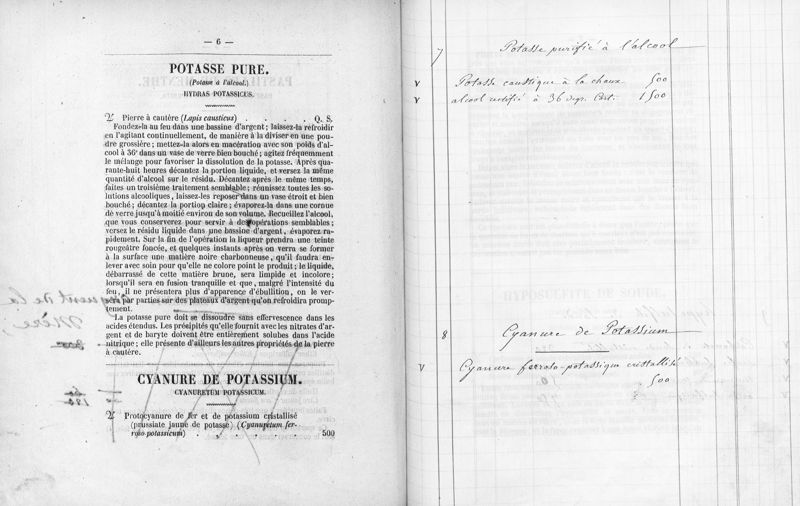 — 6 —
POTASSE PURE.
(Potasse à l'alcool.)
HYDRAS POTASSICUS.
♃ Pierre à cautère (Lapis causticus) . . . . Q. S.
Fondez-la au feu dans une bassine d'argent; laissez-la refroidir
en l'agitant continuellement, de manière à la diviser en une pou-
dre grossière; mettez-la alors en macération avec son poids d'al-
cool à 36° dans un vase de verre bien bouché; agitez fréquemment
le mélange pour favoriser la dissolution de la potasse. Après qua-
rante-huit heures décantez la portion liquide, et versez la même
quantité d'alcool sur le résidu. Décantez après le même temps,
faites un troisième traitement semblable; réunissez toutes les so-
lutions alcooliques, laissez-les reposer dans un vase étroit et bien
bouché; décantez la portion claire; évaporez-la dans une cornue
de verre jusqu'à moitié environ de son volume. Recueillez l'alcool,
que vous conserverez pour servir à des opérations semblables;
versez le résidu liquide dans une bassine d'argent, évaporez ra-
pidement. Sur la fin de l'opération la liqueur prendra une teinte
rougeâtre foncée, et quelques instants après on verra se former
à la surface une matière noire charbonneuse, qu'il faudra en-
lever avec soin pour qu'elle ne colore point le produit; le liquide,
débarrassé de cette matière brune, sera limpide et incolore;
lorsqu'il sera en fusion tranquille et que, malgré l'intensité du
feu, il ne présentera plus d'apparence d'ébullition, on le ver-
sera par parties sur des plateaux d'argent qu'on refroidira promp-
tement.
La potasse pure doit se dissoudre sans effervescence dans les
acides étendus. Les précipités qu'elle fournit avec les nitrates d'ar-
gent et de baryte doivent être entièrement solubles dans l'acide
nitrique; elle présente d'ailleurs les autres propriétés de la pierre
à cautère.
CYANURE DE POTASSIUM.
CYANURETUM POTASSICUM.
♃ Protocyanure de fer et de potassium cristallisé
(prussiate jaune de potasse) (Cyanuretum fer-
roso-potassicum) . . . . . . 500
7 Potasse purifié à l'alcool
v Potasse caustique à la chaux 500
v alcool rectifié à 36 degr. Cart. 1500
HYPOSULFITE DE SOUDE.
8 Cyanure de Potassium
v Cyanure ferroso-potassique cristallisé
500